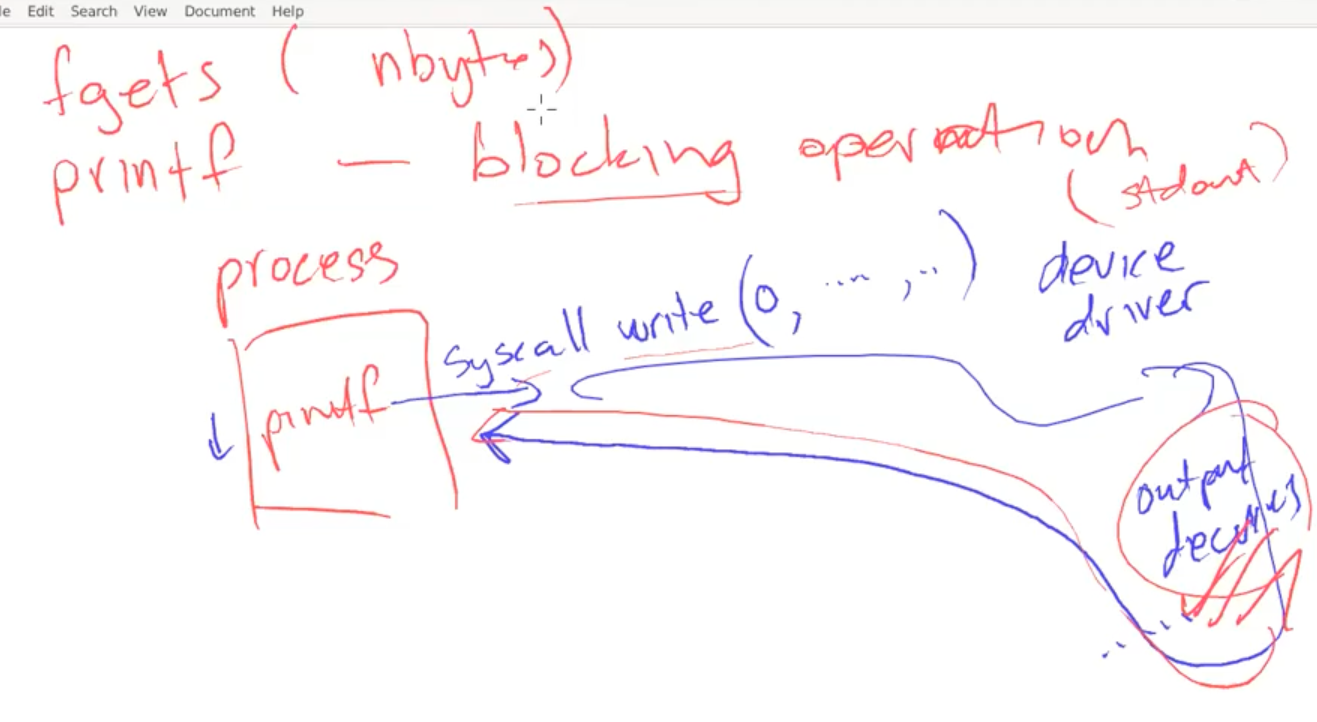 le Edit Search View Document Help
fgets ( nbytes)
printf — blocking operation
(stdout)
process
syscall write (0, ...., ..)
device
driver
printf
output
devices